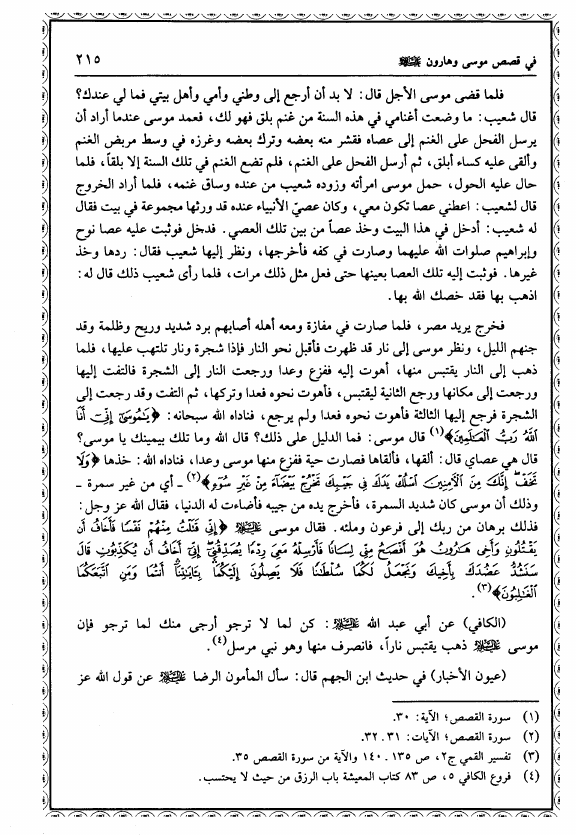 في قصص موسى وهارون ﷺ ٢١٥
فلما قضى موسى الأجل قال: لا بد أن أرجع إلى وطني وأمي وأهل بيتي فما لي عندك؟
قال شعيب: ما وضعت أغنامي في هذه السنة من غنم بلق فهو لك، فعمد موسى عندما أراد أن
يرسل الفحل على الغنم إلى عصاه فقشر منه بعضه وترك بعضه وغرزه في وسط مربض الغنم
وألقى عليه كساء أبلق، ثم أرسل الفحل على الغنم، فلم تضع الغنم في تلك السنة إلا بلقاً، فلما
حال عليه الحول، حمل موسى امرأته وزوده شعيب من عنده وساق غنمه، فلما أراد الخروج
قال لشعيب: اعطني عصا تكون معي، وكان عصيّ الأنبياء عنده قد ورثها مجموعة في بيت فقال
له شعيب: أدخل في هذا البيت وخذ عصاً من بين تلك العصي. فدخل فوثبت عليه عصا نوح
وإبراهيم صلوات الله عليهما وصارت في كفه فأخرجها، ونظر إليها شعيب فقال: ردها وخذ
غيرها. فوثبت إليه تلك العصا بعينها حتى فعل مثل ذلك مرات، فلما رأى شعيب ذلك قال له:
اذهب بها فقد خصك الله بها.
فخرج يريد مصر، فلما صارت في مفازة ومعه أهله أصابهم برد شديد وريح وظلمة وقد
جنهم الليل، ونظر موسى إلى نار قد ظهرت فأقبل نحو النار فإذا شجرة ونار تلتهب عليها، فلما
ذهب إلى النار يقتبس منها، أهوت إليه ففزع وعدا ورجعت النار إلى الشجرة فالتفت إليها
ورجعت إلى مكانها ورجع الثانية ليقتبس، فأهوت نحوه فعدا وتركها، ثم التفت وقد رجعت إلى
الشجرة فرجع إليها الثالثة فأهوت نحوه فعدا ولم يرجع، فناداه الله سبحانه: ﴿يَٰمُوسَىٰٓ إِنِّىٓ أَنَا
ٱللَّهُ رَبُّ ٱلْعَٰلَمِينَ﴾(١) قال موسى: فما الدليل على ذلك؟ قال الله وما تلك بيمينك يا موسى؟
قال هي عصاي قال: ألقها، فألقاها فصارت حية ففزع منها موسى وعدا، فناداه الله: خذها ﴿وَلَا
تَخَفْ إِنَّكَ مِنَ ٱلْأَمِنِينَ ٱسْلُكْ يَدَكَ فِى جَيْبِكَ تَخْرُجْ بَيْضَآءَ مِنْ غَيْرِ سُوٓءٍ﴾(٢) ـ أي من غير سمرة ـ
وذلك أن موسى كان شديد السمرة، فأخرج يده من جيبه فأضاءت له الدنيا، فقال الله عز وجل:
فذلك برهان من ربك إلى فرعون وملئه. فقال موسى ﷺ ﴿إِنِّى قَتَلْتُ مِنْهُمْ نَفْسًا فَأَخَافُ أَن
يَقْتُلُونِ وَأَخِى هَٰرُونُ هُوَ أَفْصَحُ مِنِّى لِسَانًا فَأَرْسِلْهُ مَعِىَ رِدْءًا يُصَدِّقُنِىٓ إِنِّىٓ أَخَافُ أَن يُكَذِّبُونِ قَالَ
سَنَشُدُّ عَضُدَكَ بِأَخِيكَ وَنَجْعَلُ لَكُمَا سُلْطَٰنًا فَلَا يَصِلُونَ إِلَيْكُمَا بِـَٔايَٰتِنَآ أَنتُمَا وَمَنِ ٱتَّبَعَكُمَا
ٱلْغَٰلِبُونَ﴾(٣).
(الكافي) عن أبي عبد الله ﷺ: كن لما لا ترجو أرجى منك لما ترجو فإن
موسى ﷺ ذهب يقتبس ناراً، فانصرف منها وهو نبي مرسل(٤).
(عيون الأخبار) في حديث ابن الجهم قال: سأل المأمون الرضا ﷺ عن قول الله عز
(١) سورة القصص؛ الآية: ٣٠.
(٢) سورة القصص؛ الآيات: ٣١ ـ ٣٢.
(٣) تفسير القمي ج٢، ص ١٣٥ ـ ١٤٠ والآية من سورة القصص ٣٥.
(٤) فروع الكافي ٥، ص ٨٣ كتاب المعيشة باب الرزق من حيث لا يحتسب.